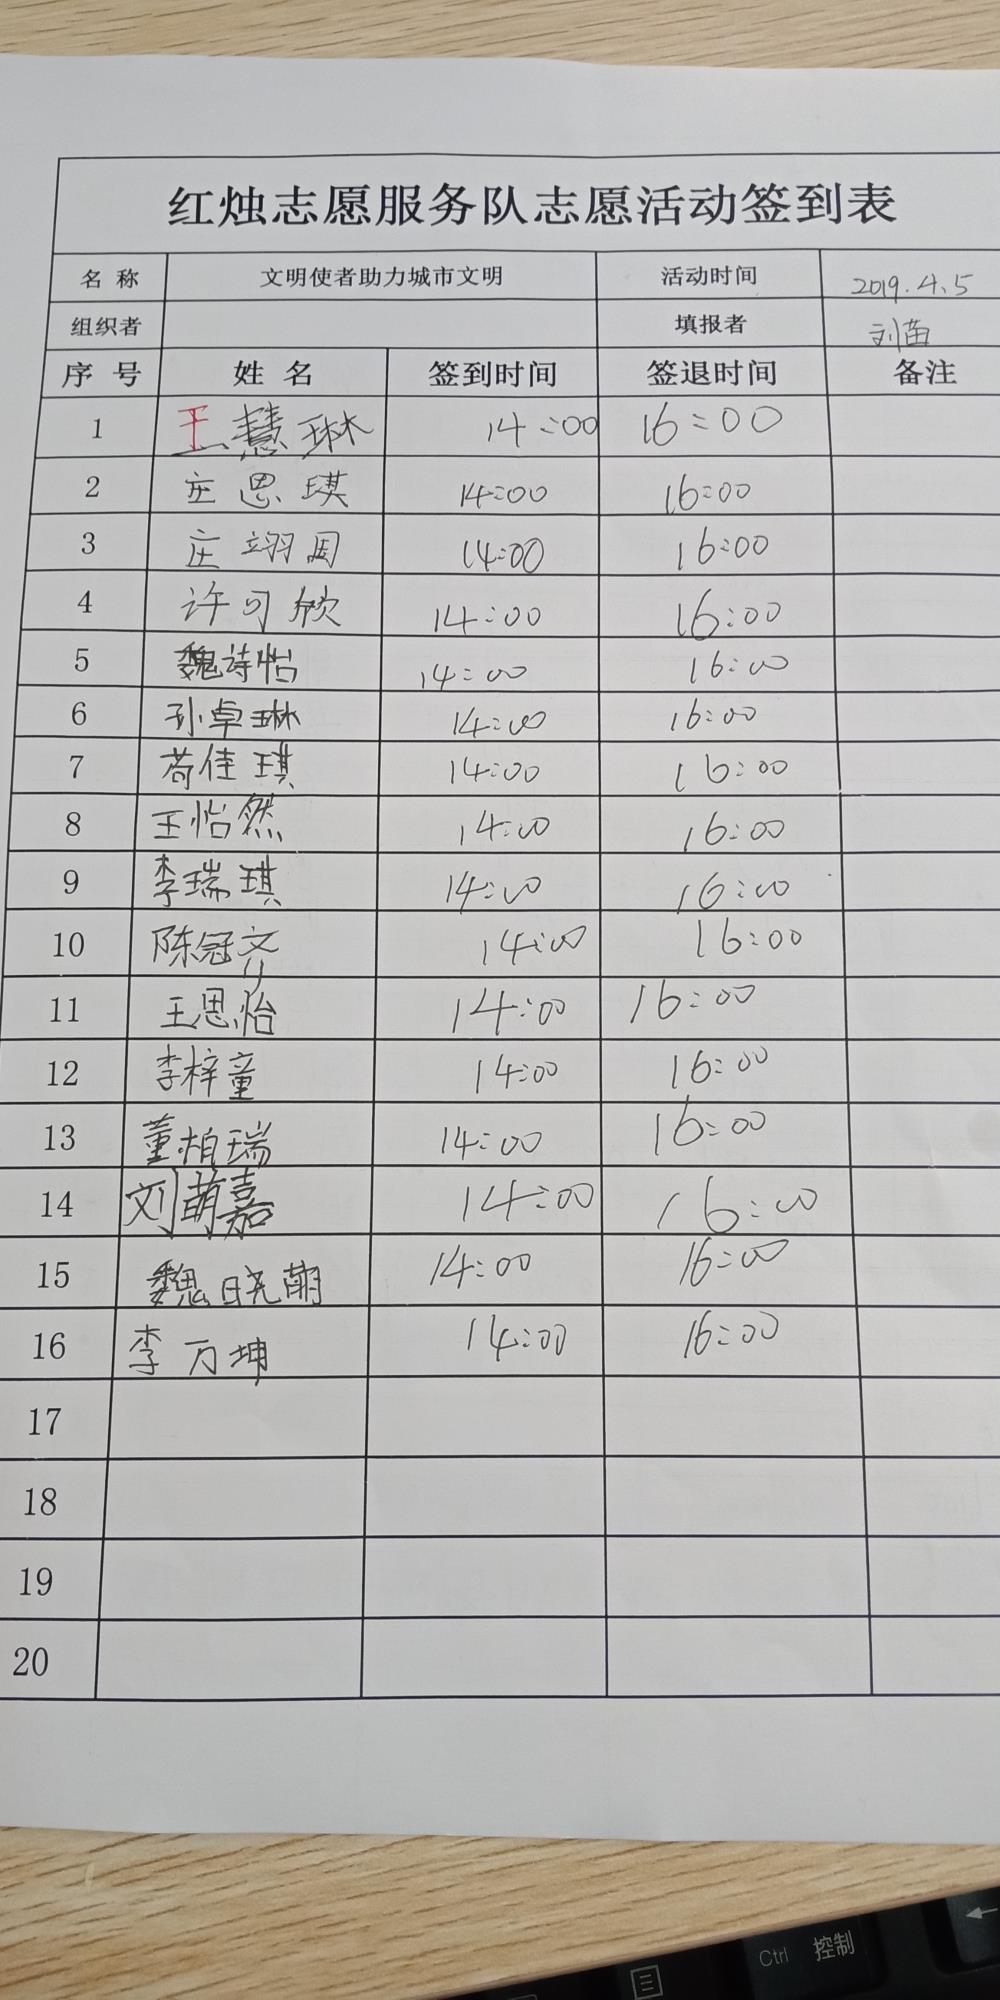 红烛志愿服务队志愿活动签到表
名 称 文明使者助力城市文明 活动时间 2019.4.5
组织者 填报者 刘苗
序 号 姓 名 签到时间 签退时间 备注
1 王慧琳 14:00 16:00
2 庄思琪 14:00 16:00
3 庄翊周 14:00 16:00
4 许可欣 14:00 16:00
5 魏诗怡 14:00 16:00
6 孙卓琳 14:00 16:00
7 苟佳琪 14:00 16:00
8 王怡然 14:00 16:00
9 李瑞琪 14:00 16:00
10 陈冠齐 14:00 16:00
11 王思怡 14:00 16:00
12 李梓童 14:00 16:00
13 董柏瑞 14:00 16:00
14 刘萌嘉 14:00 16:00
15 魏晓萌 14:00 16:00
16 李万坤 14:00 16:00
17
18
19
20
Ctrl 控制